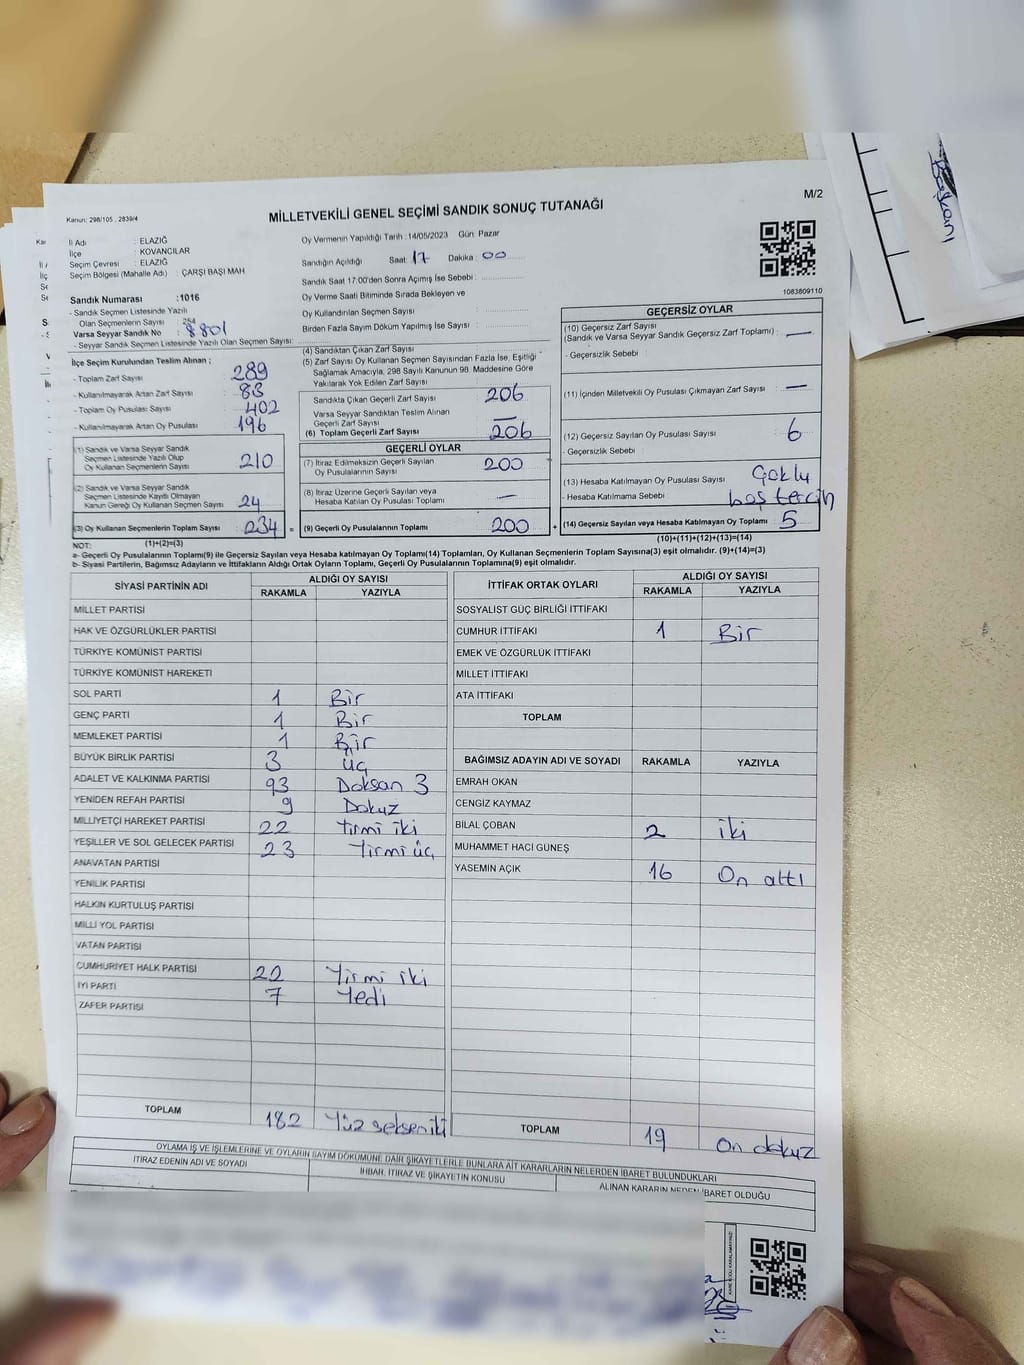 Başkanı
M/2
Kanun: 298/105 , 2839/4
MİLLETVEKİLİ GENEL SEÇİMİ SANDIK SONUÇ TUTANAĞI
İl Adı : ELAZIĞ
İlçe : KOVANCILAR
Seçim Çevresi : ELAZIĞ
Seçim Bölgesi (Mahalle Adı) : ÇARŞI BAŞI MAH
Sandık Numarası :1016
- Sandık Seçmen Listesinde Yazılı
Olan Seçmenlerin Sayısı : 254
Varsa Seyyar Sandık No : 8801
- Seyyar Sandık Seçmen Listesinde Yazılı Olan Seçmen Sayısı:
Oy Vermenin Yapıldığı Tarih :14/05/2023 Gün: Pazar
Sandığın Açıldığı Saat : 17 Dakika : 00
Sandık Saat 17:00'den Sonra Açımış İse Sebebi :
Oy Verme Saati Bitiminde Sırada Bekleyen ve
Oy Kullandırılan Seçmen Sayısı :
Birden Fazla Sayım Dökum Yapılmış İse Sayısı :
1083809110
İlçe Seçim Kurulundan Teslim Alınan ;
- Toplam Zarf Sayısı : 289
- Kullanılmayarak Artan Zarf Sayısı : 83
- Toplam Oy Pusulası Sayısı : 402
- Kullanılmayarak Artan Oy Pusulası : 196
(1) Sandık ve Varsa Seyyar Sandık
Seçmen Listesinde Yazılı Olup
Oy Kullanan Seçmenlerin Sayısı : 210
(2) Sandık ve Varsa Seyyar Sandık
Seçmen Listesinde Kayıtlı Olmayan
Kanun Gereği Oy Kullanan Seçmen Sayısı : 24
(3) Oy Kullanan Seçmenlerin Toplam Sayısı : 234 =
(1)+(2)=(3)
(4) Sandıktan Çıkan Zarf Sayısı :
(5) Zarf Sayısı Oy Kullanan Seçmen Sayısından Fazla İse, Eşitliği
Sağlamak Amacıyla, 298 Sayılı Kanunun 98. Maddesine Göre
Yakılarak Yok Edilen Zarf Sayısı :
Sandıkta Çıkan Geçerli Zarf Sayısı : 206
Varsa Seyyar Sandıktan Teslim Alınan
Geçerli Zarf Sayısı : —
(6) Toplam Geçerli Zarf Sayısı : 206
GEÇERLİ OYLAR
(7) İtiraz Edilmeksizin Geçerli Sayılan
Oy Pusulalarının Sayısı : 200
(8) İtiraz Üzerine Geçerli Sayılan veya
Hesaba Katılan Oy Pusulası Toplamı : —
(9) Geçerli Oy Pusulalarının Toplamı : 200 +
GEÇERSİZ OYLAR
(10) Geçersiz Zarf Sayısı
(Sandık ve Varsa Seyyar Sandık Geçersiz Zarf Toplamı) : —
- Geçersizlik Sebebi :
(11) İçinden Milletvekili Oy Pusulası Çıkmayan Zarf Sayısı : —
(12) Geçersiz Sayılan Oy Pusulası Sayısı : 6
- Geçersizlik Sebebi :
(13) Hesaba Katılmayan Oy Pusulası Sayısı : Çoklu
- Hesaba Katılmama Sebebi : boş tercih
(14) Geçersiz Sayılan veya Hesaba Katılmayan Oy Toplamı : 5
(10)+(11)+(12)+(13)=(14)
NOT:
a- Geçerli Oy Pusulalarının Toplamı(9) ile Geçersiz Sayılan veya Hesaba katılmayan Oy Toplamı(14) Toplamları, Oy Kullanan Seçmenlerin Toplam Sayısına(3) eşit olmalıdır. (9)+(14)=(3)
b- Siyasi Partilerin, Bağımsız Adayların ve İttifakların Aldığı Ortak Oyların Toplamı, Geçerli Oy Pusulalarının Toplamına(9) eşit olmalıdır.
SİYASİ PARTİNİN ADI ALDIĞI OY SAYISI
RAKAMLA YAZIYLA
MİLLET PARTİSİ
HAK VE ÖZGÜRLÜKLER PARTİSİ
TÜRKİYE KOMÜNİST PARTİSİ
TÜRKİYE KOMÜNİST HAREKETİ
SOL PARTİ 1 Bir
GENÇ PARTİ 1 Bir
MEMLEKET PARTİSİ 1 Bir
BÜYÜK BİRLİK PARTİSİ 3 üç
ADALET VE KALKINMA PARTİSİ 93 Doksan 3
YENİDEN REFAH PARTİSİ 9 Dokuz
MİLLİYETÇİ HAREKET PARTİSİ 22 Yirmi iki
YEŞİLLER VE SOL GELECEK PARTİSİ 23 Yirmi üç
ANAVATAN PARTİSİ
YENİLİK PARTİSİ
HALKIN KURTULUŞ PARTİSİ
MİLLİ YOL PARTİSİ
VATAN PARTİSİ
CUMHURİYET HALK PARTİSİ 22 Yirmi iki
İYİ PARTİ 7 Yedi
ZAFER PARTİSİ
TOPLAM 182 Yüz seksen iki
İTTİFAK ORTAK OYLARI ALDIĞI OY SAYISI
RAKAMLA YAZIYLA
SOSYALİST GÜÇ BİRLİĞİ İTTİFAKI
CUMHUR İTTİFAKI 1 Bir
EMEK VE ÖZGÜRLÜK İTTİFAKI
MİLLET İTTİFAKI
ATA İTTİFAKI
TOPLAM
BAĞIMSIZ ADAYIN ADI VE SOYADI RAKAMLA YAZIYLA
EMRAH OKAN
CENGİZ KAYMAZ
BİLAL ÇOBAN 2 iki
MUHAMMET HACİ GÜNEŞ
YASEMİN AÇIK 16 On altı
TOPLAM 19 On dokuz
OYLAMA İŞ VE İŞLEMLERİNE VE OYLARIN SAYIM DÖKÜMÜNE DAİR ŞİKAYETLERLE BUNLARA AİT KARARLARIN NELERDEN İBARET BULUNDUKLARI
İTİRAZ EDENİN ADI VE SOYADI
İHBAR, İTİRAZ VE ŞİKAYETİN KONUSU
ALINAN KARARIN NEDEN İBARET OLDUĞU
KARE KODU KARALAMAYINIZ!